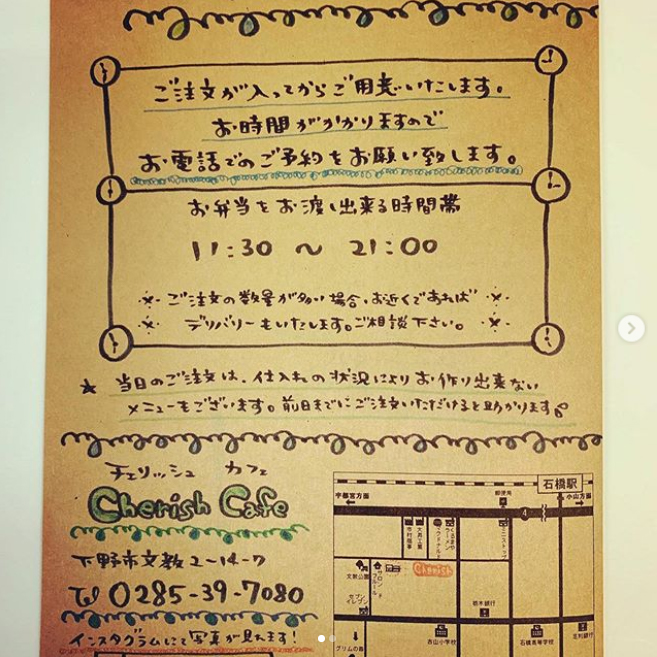 ご注文が入ってからご用意いたします。
お時間がかかりますので
お電話でのご予約をお願い致します。
お弁当をお渡し出来る時間帯
11:30 〜 21:00
ご注文の数量が多い場合、お近くであれば
デリバリーもいたします。ご相談下さい。
★ 当日のご注文は、仕入れの状況によりお作り出来ない
メニューもございます。前日までにご注文いただけると助かります
チェリッシュ カフェ
Cherish Cafe
下野市文教2-14-7
Tel 0285-39-7080
インスタグラムにて写真が見れます!
石橋駅
宇都宮方面
郵便局
小山方面
4
ミニストップ
Cherish
文教公園
サロンドブルール
セブンイレブン
栃木銀行
グリムの森
古山小学校
石橋高等学校
足利銀行